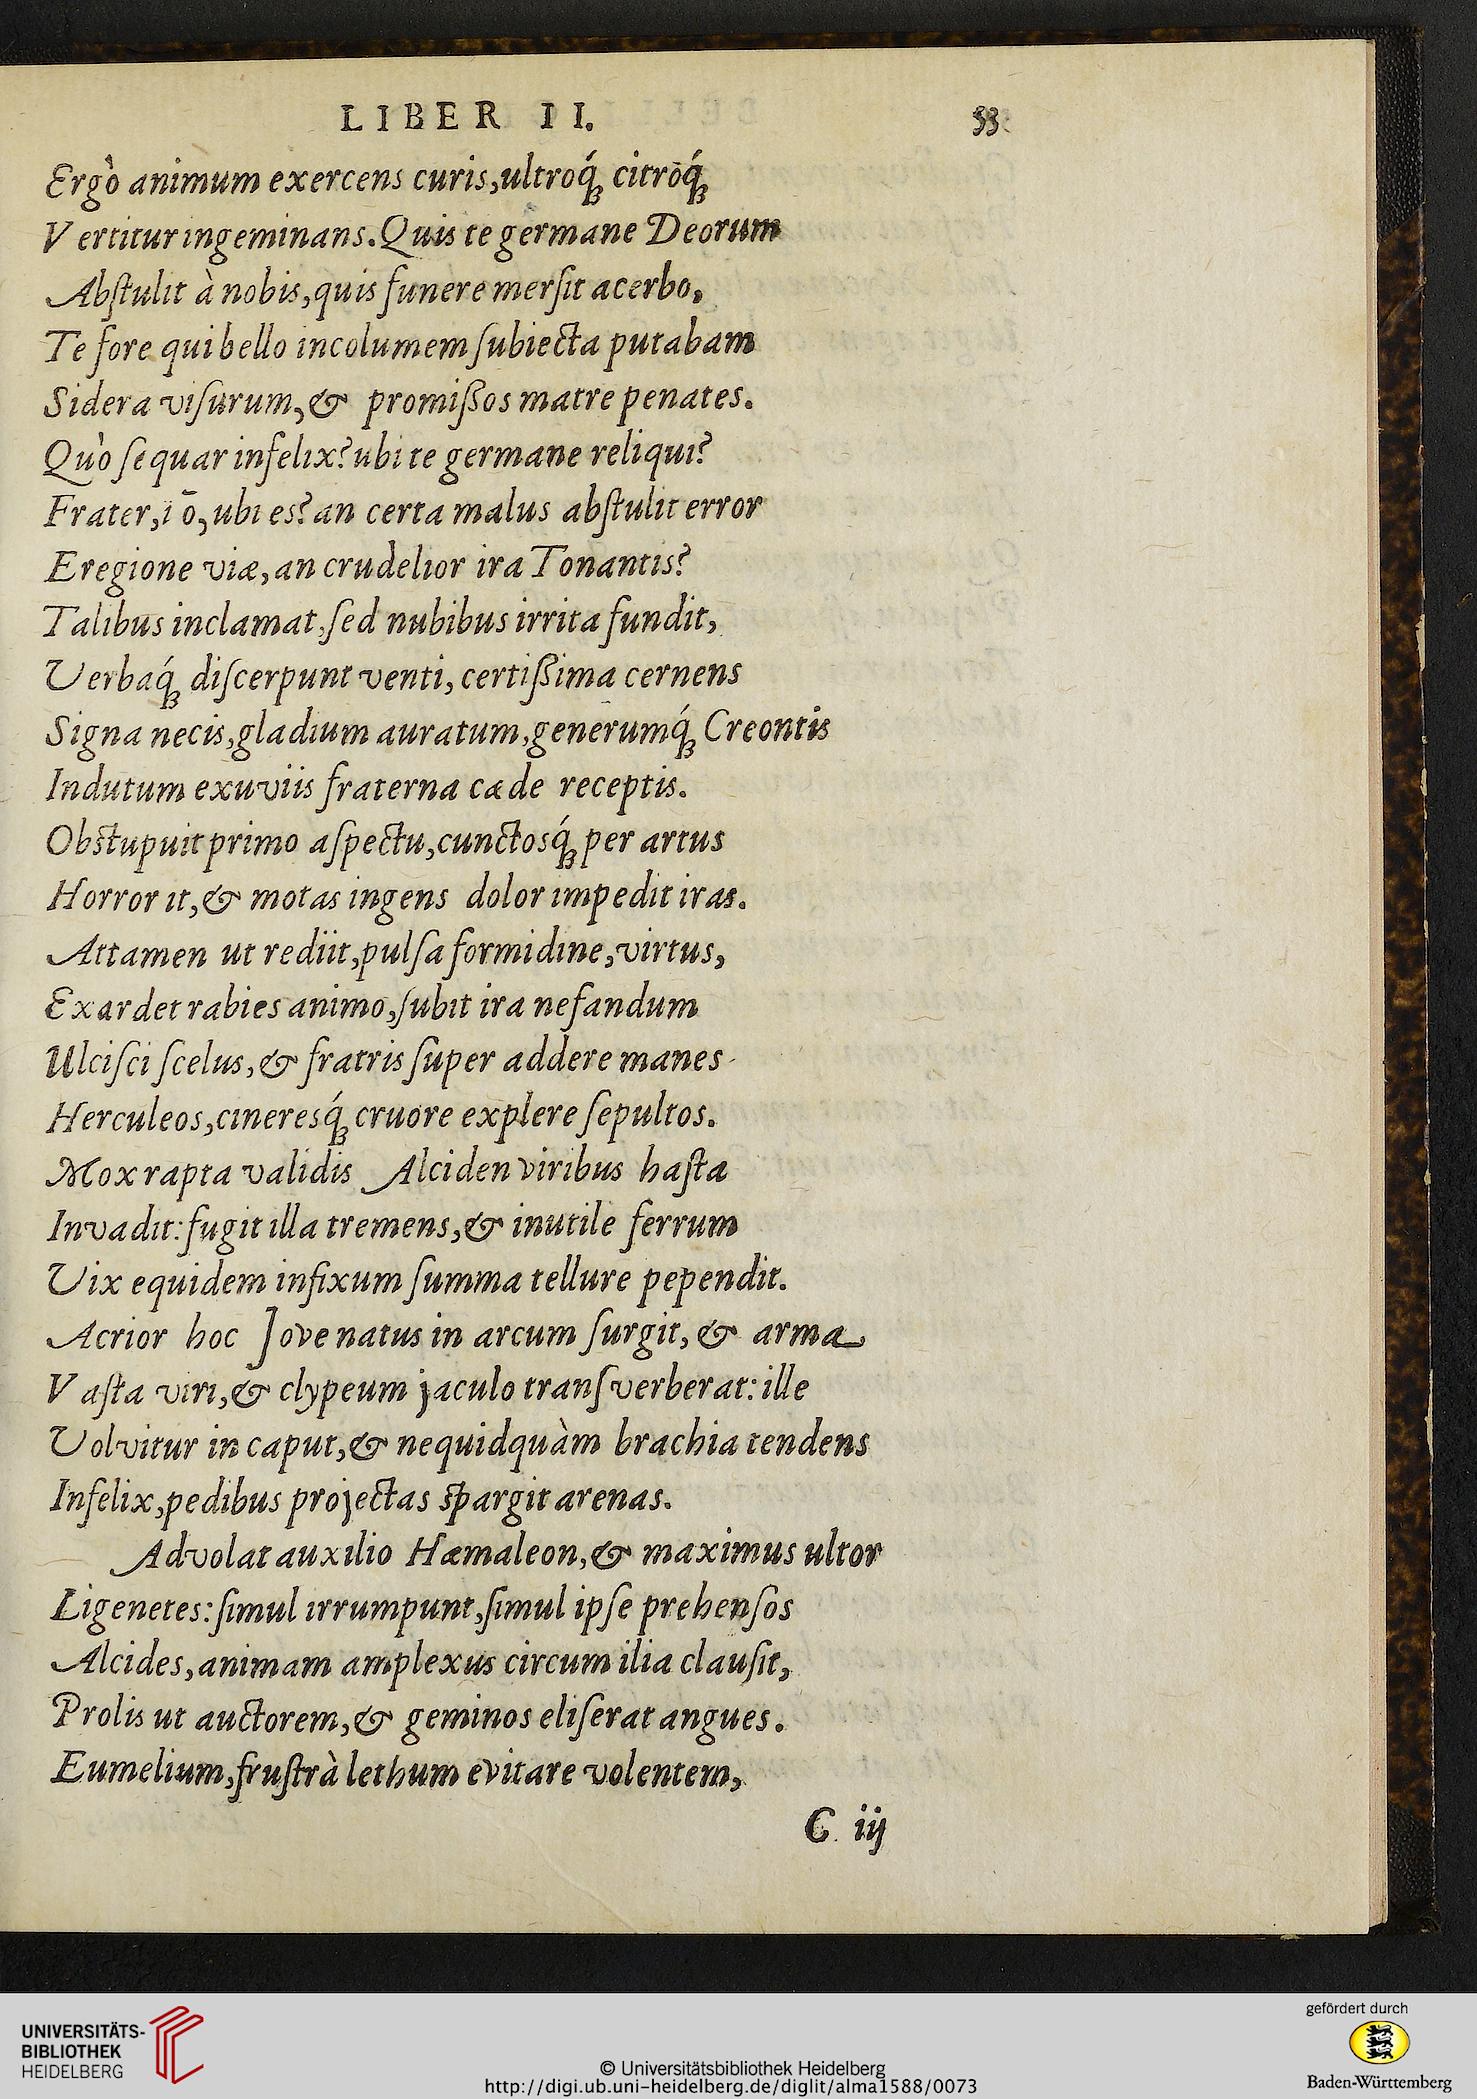 LIBER II. 53
Ergò animum exercens curis, ultroq́; citrōq́;
Vertitur ingeminans. Quis te germane Deorum
Abſtulit à nobis, quis funere merſit acerbo,
Te fore qui bello incolumem ſubiecta putabam
Sidera viſurum, & promiſſos matre penates.
Quò ſequar infelix? ubi te germane reliqui?
Frater, iō, ubi es? an certa malus abſtulit error
E regione viæ, an crudelior ira Tonantis?
Talibus inclamat, ſed nubibus irrita fundit,
Verbaq́; diſcerpunt venti, certiſſima cernens
Signa necis, gladium auratum, generumq́; Creontis
Indutum exuviis fraterna cæde receptis.
Obſtupuit primo aſpectu, cunctosq́; per artus
Horror it, & motas ingens dolor impedit iras.
Attamen ut rediit, pulſa formidine, virtus,
Exardet rabies animo, ſubit ira nefandum
Ulciſci ſcelus, & fratris ſuper addere manes
Herculeos, cineresq́; cruore explere ſepultos.
Mox rapta validis Alciden viribus haſta
Invadit: fugit illa tremens, & inutile ferrum
Vix equidem infixum ſumma tellure pependit.
Acrior hoc Jove natus in arcum ſurgit, & arma
Vaſta viri, & clypeum jaculo tranſverberat: ille
Volvitur in caput, & nequidquàm brachia tendens
Infelix, pedibus projectas ſpargit arenas.
Advolat auxilio Hæmaleon, & maximus ultor
Ligenetes: ſimul irrumpunt, ſimul ipſe prehenſos
Alcides, animam amplexus circum ilia clauſit,
Prolis ut auctorem, & geminos eliſerat angues.
Eumelium, fruſtrà lethum evitare volentem,
C iij
UNIVERSITÄTS-
BIBLIOTHEK
HEIDELBERG
© Universitätsbibliothek Heidelberg
http://digi.ub.uni-heidelberg.de/diglit/alma1588/0073
gefördert durch
Baden-Württemberg